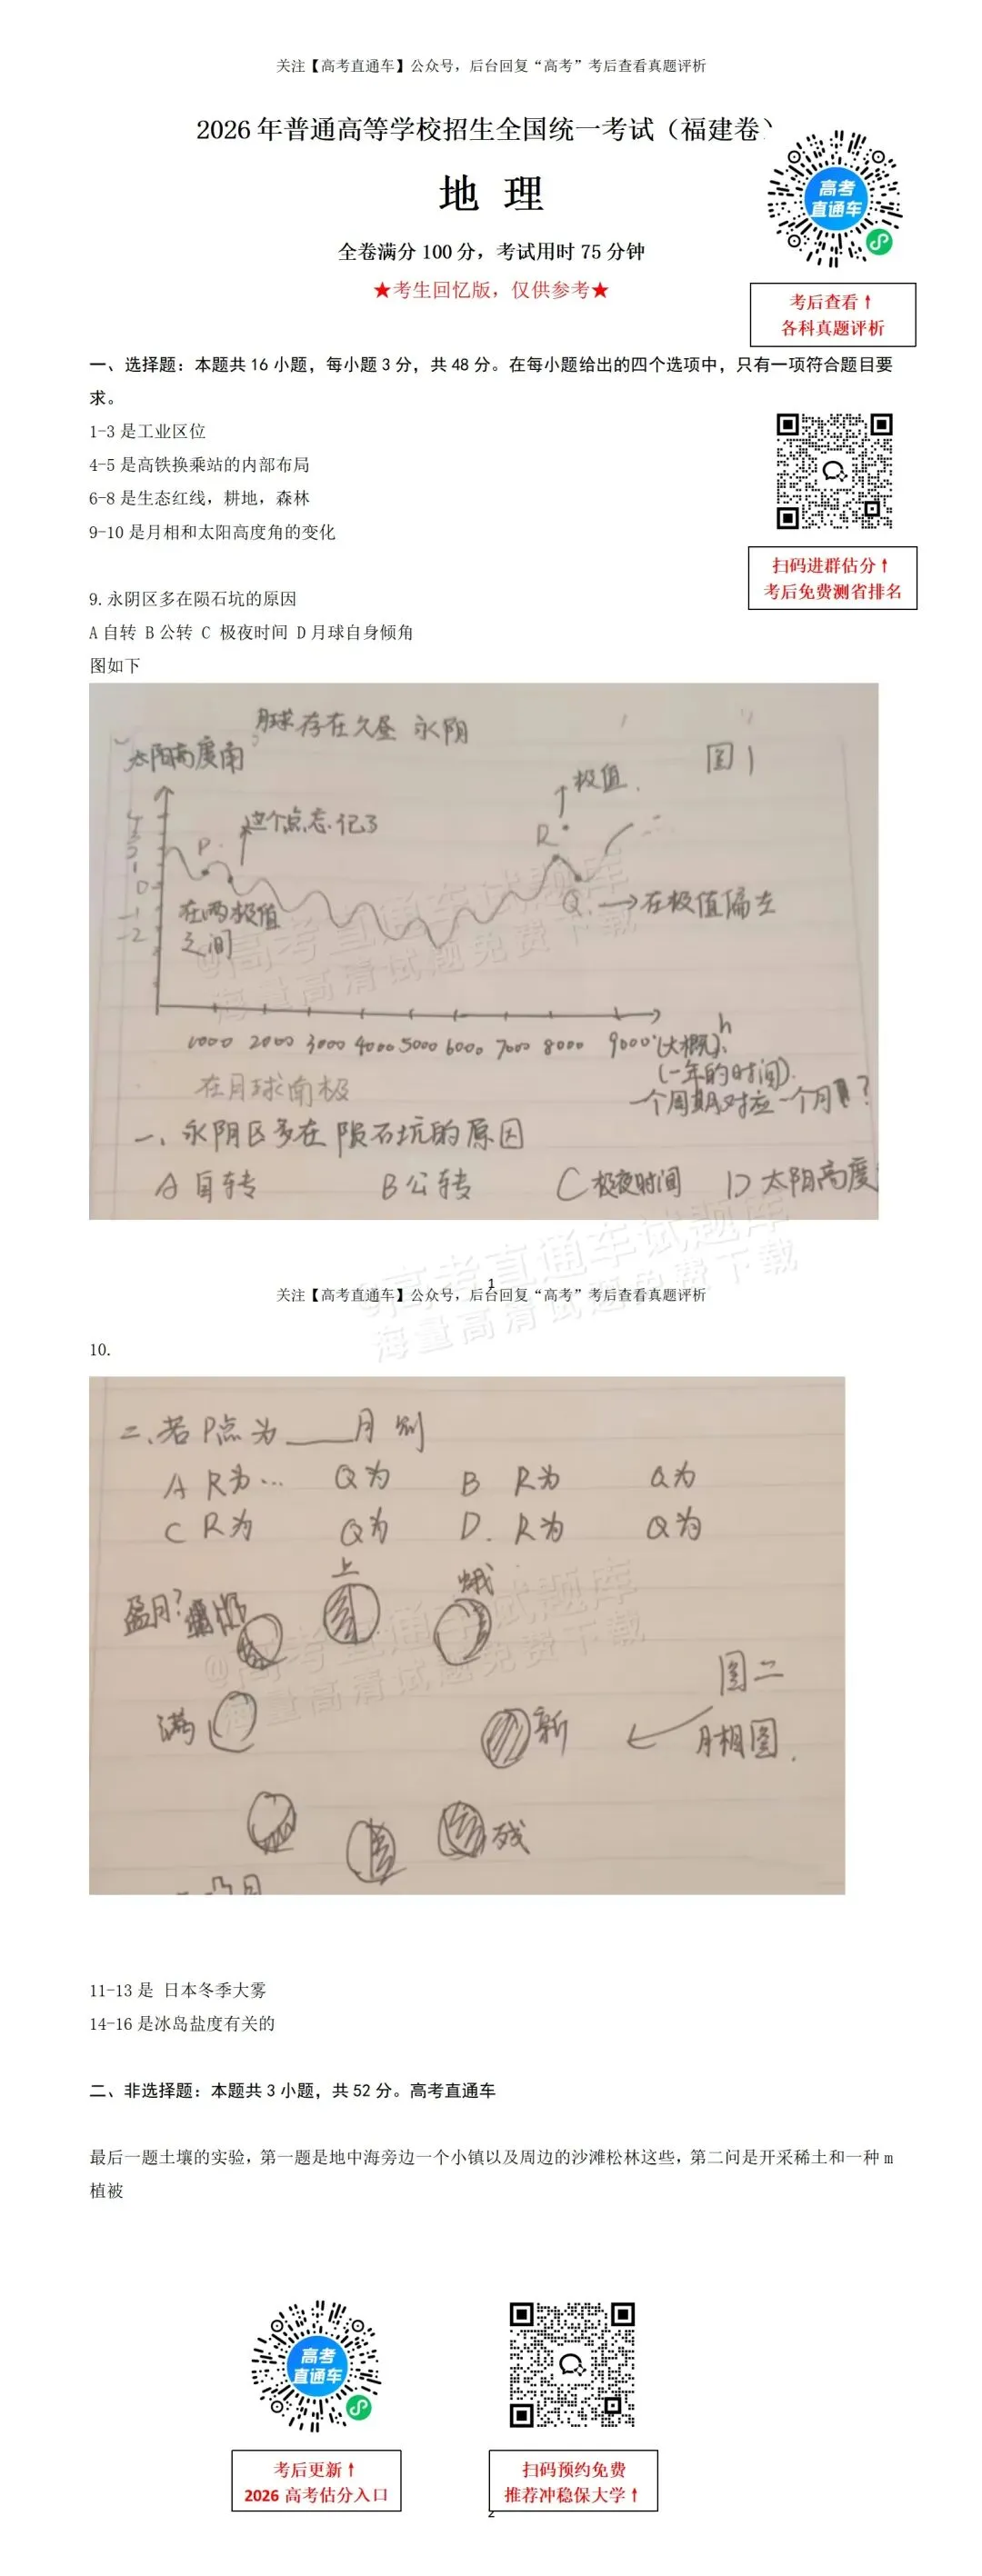 关注【高考直通车】公众号，后台回复“高考”考后查看真题评析
2026 年普通高等学校招生全国统一考试（福建卷）
地 理
高考
直通车
全卷满分 100 分，考试用时 75 分钟
★考生回忆版，仅供参考★
考后查看↑
各科真题评析
一、选择题：本题共 16 小题，每小题 3 分，共 48 分。在每小题给出的四个选项中，只有一项符合题目要
求。
1-3 是工业区位
4-5 是高铁换乘站的内部布局
6-8 是生态红线，耕地，森林
9-10 是月相和太阳高度角的变化
扫码进群估分↑
考后免费测省排名
9.永阴区多在陨石坑的原因
A 自转 B 公转 C 极夜时间 D 月球自身倾角
图如下
月球存在久昼 永阴
太阳高度角
图1
极值
这个点忘记了
P
R
0
-1
-2
在两极值
之间
Q → 在极值偏左
@高考直通车试题库
海量高清试题免费下载
1000 2000 3000 4000 5000 6000 7000 8000 9000 (大概) h
(一年的时间)
在月球南极
一个周期对应一个月?
一、永阴区多在陨石坑的原因
A 自转 B 公转 C 极夜时间 D 太阳高度
@高考直通车试题库
海量高清试题免费下载
1
关注【高考直通车】公众号，后台回复“高考”考后查看真题评析
10.
二、若P点为____月 别
A R为… Q为 B R为 Q为
C R为 Q为 D. R为 Q为
上
蛾
盈月?
@高考直通车试题库
海量高清试题免费下载
图二
满
新
月相图.
残
凸月
11-13 是 日本冬季大雾
14-16 是冰岛盐度有关的
二、非选择题：本题共 3 小题，共 52 分。高考直通车
最后一题土壤的实验，第一题是地中海旁边一个小镇以及周边的沙滩松林这些，第二问是开采稀土和一种 m
植被
高考
直通车
考后更新↑
2026 高考估分入口
扫码预约免费
推荐冲稳保大学↑
2